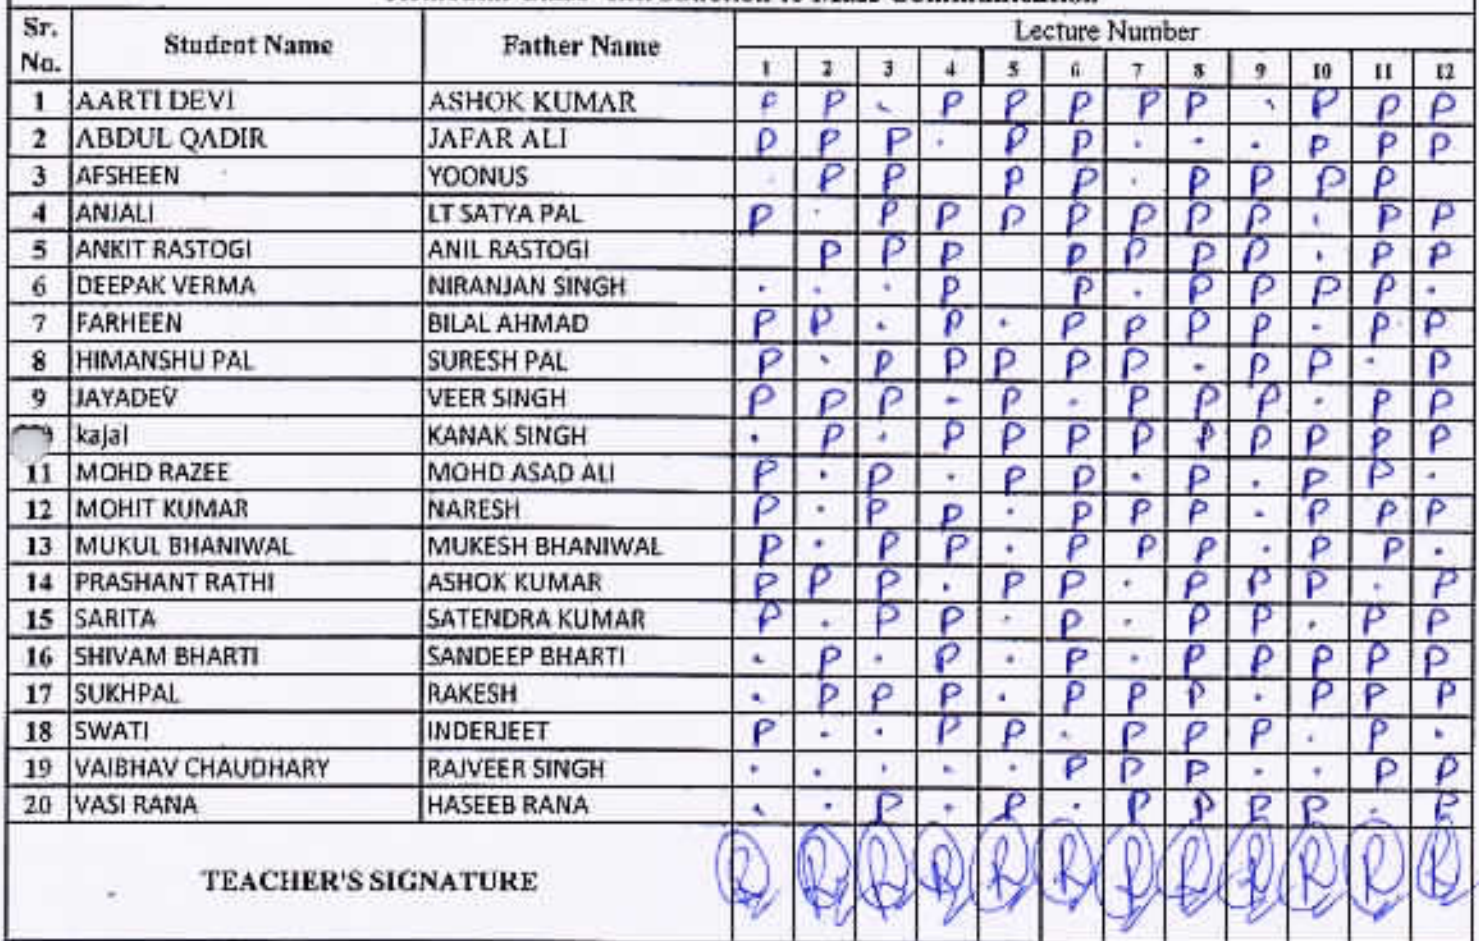 Mass Communication
Sr. No. Student Name Father Name Lecture Number
1 2 3 4 5 6 7 8 9 10 11 12
1 AARTI DEVI ASHOK KUMAR P P . P P P P P . P P P
2 ABDUL QADIR JAFAR ALI P P P . P P . . . P P P
3 AFSHEEN YOONUS . P P P P . P P P P
4 ANJALI LT SATYA PAL P . P P P P P P P . P P
5 ANKIT RASTOGI ANIL RASTOGI P P P P P P P . P P
6 DEEPAK VERMA NIRANJAN SINGH . . . P P . P P P P .
7 FARHEEN BILAL AHMAD P P . P . P P P P . P P
8 HIMANSHU PAL SURESH PAL P . P P P P P . P P . P
9 JAYADEV VEER SINGH P P P - P . P P P . P P
kajal KANAK SINGH . P . P P P P P P P P P
11 MOHD RAZEE MOHD ASAD ALI P . P . P P . P . P P .
12 MOHIT KUMAR NARESH P . P P . P P P . P P P
13 MUKUL BHANIWAL MUKESH BHANIWAL P . P P . P P P . P P .
14 PRASHANT RATHI ASHOK KUMAR P P P . P P . P P P . P
15 SARITA SATENDRA KUMAR P . P P . P . P P . P P
16 SHIVAM BHARTI SANDEEP BHARTI . P . P . P . P P P P P
17 SUKHPAL RAKESH . P P P . P P P . P P P
18 SWATI INDERJEET P . . P P . P P P . P .
19 VAIBHAV CHAUDHARY RAJVEER SINGH . . . . . P P P . . P P
20 VASI RANA HASEEB RANA . . P . P . P P P P . P
TEACHER'S SIGNATURE